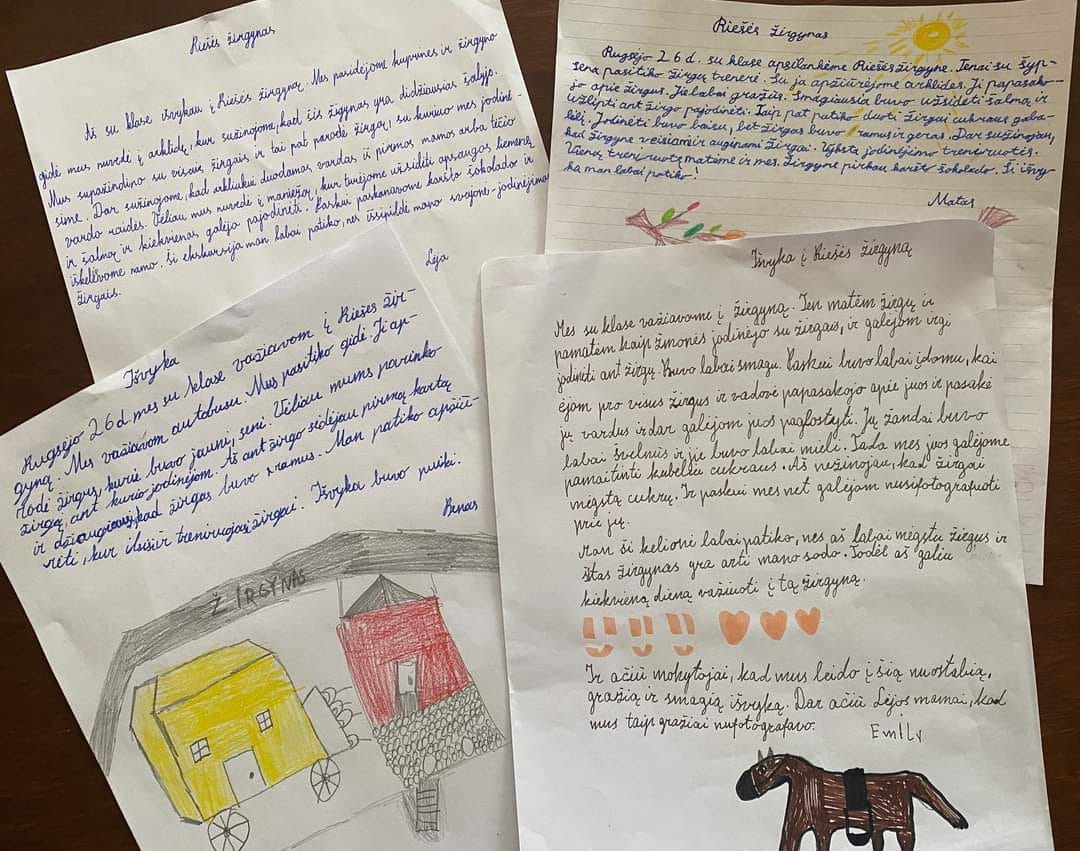 Riešės žirgynas
Aš su klase išvykau į Riešės žirgyną. Mes pasidėjome kuprines ir žirgyno
gidė mus nuvedė į arklidę, kur sužinojome, kad šis žigynas yra didžiausias šalyje.
Mus supažindino su visais žirgais ir tai pat parodė žirgą, su kuriuo mes jodinė-
sime. Dar sužinojome, kad arkliukui duodamas vardas iš pirmos mamos arba tėčio
vardo raidės. Vėliau mus nuvedė į maniežą, kur turėjome užsidėti apsaugos liemenę
ir šalmą ir kiekvienas galėjo pajodinėti. Paskui paskanavome karšto šokolado ir
iškeliavome namo. Ši ekskursija man labai patiko, nes išsipildė mano svajonė - jodinėjimas
žirgais.
Lėja
Riešės žirgynas
Rugsėjo 26 d. su klase apsilankėme Riešės žirgyne. Tenai su šyp-
sena pasitiko žirgų trenerė. Su ja apžiūrėjome arklides. Ji papasako-
jo apie žirgus. Jie labai gražūs. Smagiausia buvo užsidėti šalmą ir
užlipti ant žirgo pajodinėti. Taip pat patiko duoti žirgui cukraus gaba-
lėlį. Jodinėti buvo baisu, bet žirgas buvo ramus ir geras. Dar sužinojau,
kad žirgyne veisiami ir auginami žirgai. Vyksta jodinėjimo treniruotės.
Vieną treniruotę matėme ir mes. Žirgyne pirkau karšto šokolado. Ši išvy-
ka man labai patiko!
Matas
Išvyka
Rugsėjo 26 d mes su klase važiavom į Riešės žir-
gyną. Mes važiavom autobusu. Mus pasitiko gidė. Ji ap-
rodė žirgus, kurie buvo jauni, seni. Vėliau mums parinko
žirgą, ant kurio jodinėjom. Aš ant žirgo sėdėjau pirmą kartą
ir džiaugiausi, kad žirgas buvo ramus. Man patiko apžiū-
rėti, kur ilsisi ir treniruojasi žirgai. Išvyka buvo puiki.
Benas
ŽIRGYNAS
Išvyka į Riešės žirgyną
Mes su klase važiavome į žirgyną. Ten matėm žirgų ir
pamatėm kaip žmonės jodinėjo su žirgais, ir galėjom irgi
jodinėti ant žirgų. Buvo labai smagu. Paskui buvo labai įdomu, kai
ėjom pro visus žirgus ir vadovė papasakojo apie juos ir pasakė
jų vardus ir dar galėjom juos paglostyti. Jų žandai buvo
labai švelnūs ir jie buvo labai mieli. Tada mes juos galėjome
pamaitinti kubeliu cukraus. Aš nežinojau, kad žirgai
mėgsta cukrų. Ir paskui mes net galėjom nusifotografuoti
prie jų.
Man ši kelionė labai patiko, nes aš labai mėgstu žirgus ir
šitas žirgynas yra arti mano sodo. Todėl aš galiu
kiekvieną dieną važiuoti į tą žirgyną.
Ir ačiū mokytojai, kad mus leido į šią nuostabią,
gražią ir smagią išvyką. Dar ačiū Lėjos mamai, kad
mus taip gražiai nufotografavo.
Emily